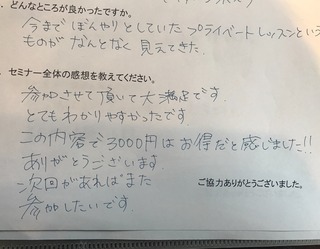 どんなところが良かったですか。
今までぼんやりとしていたプライベートレッスンという
ものがなんとなく見えてきた.
セミナー全体の感想を教えてください。
参加させて頂いて大満足です.
とてもわかりやすかったです.
この内容で3000円はお得だと感じました!!
ありがとうございます.
ご協力ありがとうございました。
次回があればまた
参加したいです.